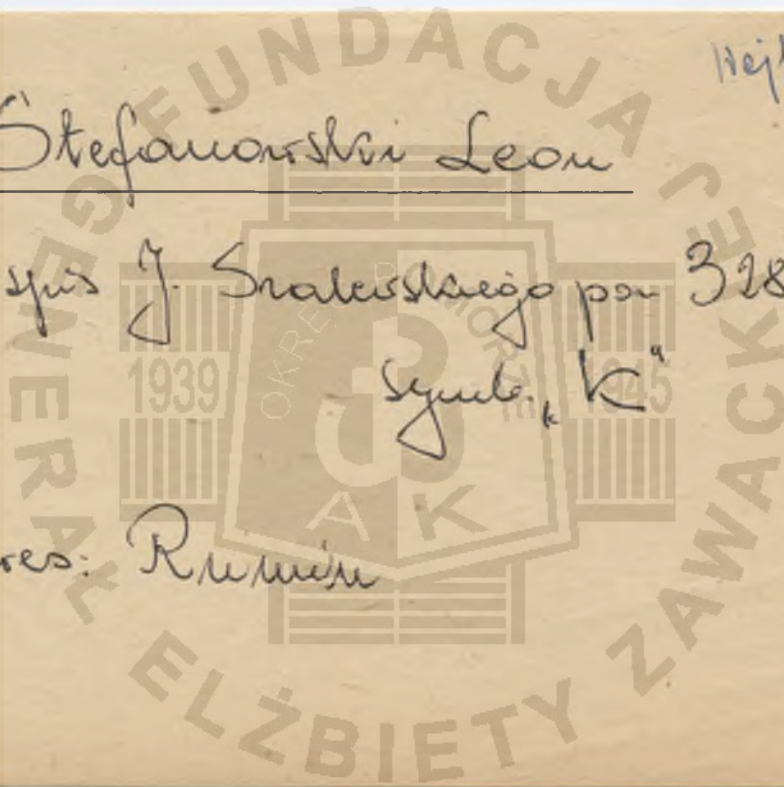 Wej
Stefanowski Leon
spis J. Szalewskiego poz 328
symb. „K"
res: Rumia
FUNDACJA GENERAŁ ELŻBIETY ZAWACK
OKRĘ POMORZE
1939 1945
AK